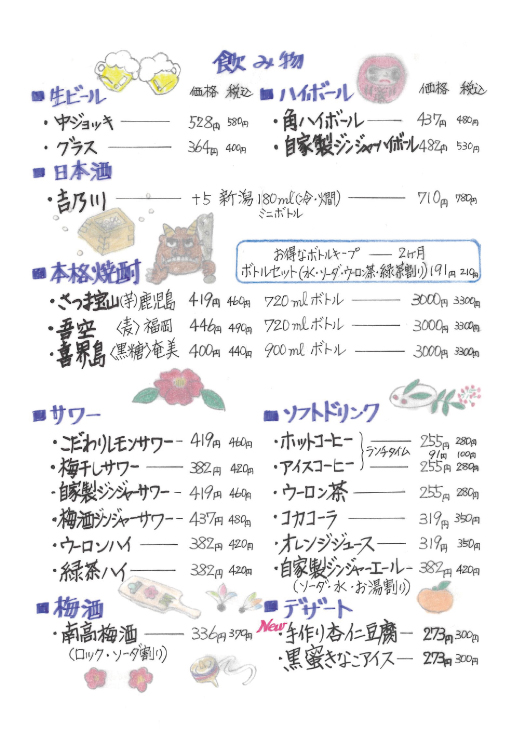 飲み物
■生ビール 価格 税込
・中ジョッキ 528円 580円
・グラス 364円 400円
■ハイボール 価格 税込
・角ハイボール 437円 480円
・自家製ジンジャーハイボール 482円 530円
■日本酒
・吉乃川 +5 新潟 180ml(冷・燗) 710円 780円
ミニボトル
お得なボトルキープ 2ヶ月
ボトルセット(水・ソーダ・ウーロン茶・緑茶割り) 191円 210円
■本格焼酎
・さつま宝山(芋)鹿児島 419円 460円 720mlボトル 3000円 3300円
・吾空〈麦〉福岡 446円 490円 720mlボトル 3000円 3300円
・喜界島〈黒糖〉奄美 400円 440円 900mlボトル 3000円 3300円
■サワー
・こだわりレモンサワー 419円 460円
・梅干しサワー 382円 420円
・自家製ジンジャーサワー 419円 460円
・梅酒ジンジャーサワー 437円 480円
・ウーロンハイ 382円 420円
・緑茶ハイ 382円 420円
■梅酒
・南高梅酒 336円 370円
(ロック・ソーダ割り)
■ソフトドリンク
・ホットコーヒー 255円 280円
ランチタイム 91円 100円
・アイスコーヒー 255円 280円
・ウーロン茶 255円 280円
・コカコーラ 319円 350円
・オレンジジュース 319円 350円
・自家製ジンジャーエール 382円 420円
(ソーダ・水・お湯割り)
■デザート
New
・手作り杏仁豆腐 273円 300円
・黒蜜きなこアイス 273円 300円